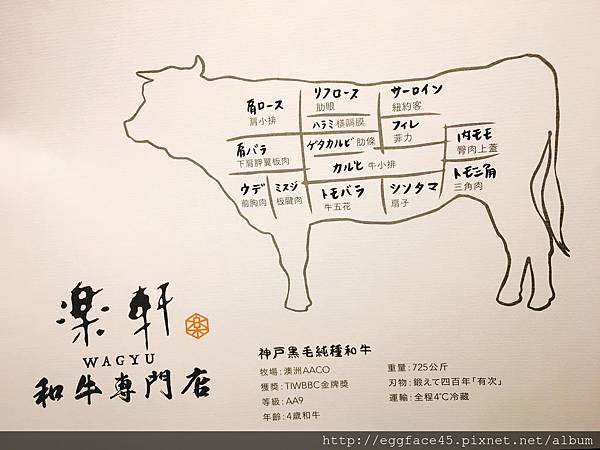 肩ロース
肩小排
リブロース
肋眼
サーロイン
紐約客
ハラミ 橫隔膜
フィレ
菲力
肩バラ
下肩胛翼板肉
ゲタカルビ 肋條
内モモ
臀肉上蓋
カルビ 牛小排
ウデ
前胸肉
ミスジ
板腱肉
トモバラ
牛五花
シンタマ
扇子
トモ三角
三角肉
楽軒
楽
WAGYU
和牛專門店
神戸黒毛純種和牛
牧場:澳洲AACO
獲獎:TIWBBC金牌獎
等級:AA9
年齡:4歲和牛
重量:725公斤
刃物:鍛えて四百年「有次」
運輸:全程4℃冷藏
http://eggface45.pixnet.net/album